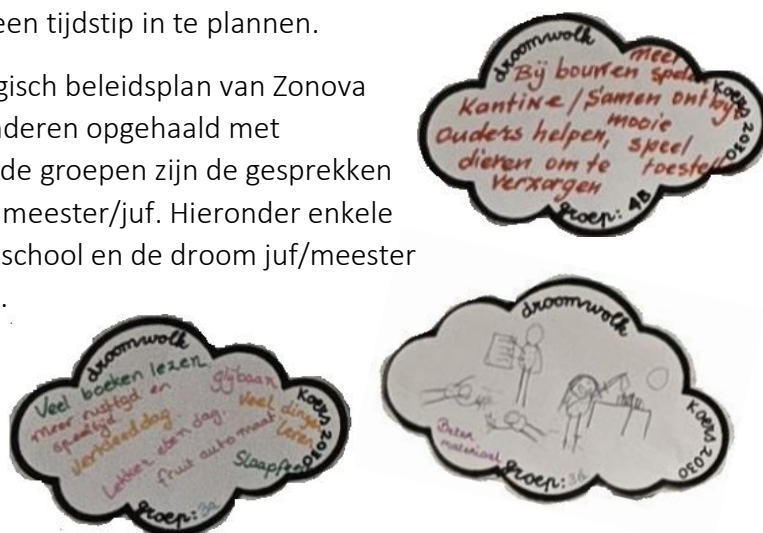 een tijdstip in te plannen.
gisch beleidsplan van Zonova
nderen opgehaald met
de groepen zijn de gesprekken
meester/juf. Hieronder enkele
school en de droom juf/meester
.
droomwolk
meer
Bij bouwen spele
Kantine / Samen ontbijt
mooie
Ouders helpen, speel
dieren om te toestel
Verzorgen
Koers 2030
groep: 4B
droomwolk
Veel boeken lezen
glijbaan
meer rusttijd en
speeltijd.
veel dingen
leren
verkleeddag.
Lekker eten dag.
fruit automaat
Slaapfeest
Koers 2030
groep: 3a
droomwolk
Beter
materiaal
Koers 2030
groep: 3a